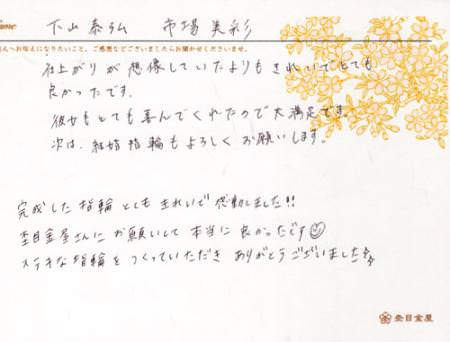 Name 下山 泰弘 市場 美彩
へお伝えになりたいこと、ご感想などございましたらお聞かせくださいませ。
仕上がりが想像していたよりもきれいでとても
良かったです。
彼女もとても喜んでくれたので大満足です。
次は、結婚指輪もよろしくお願いします。
完成した指輪とてもきれいで感動しました!!
杢目金屋さんにお願いして本当に良かったです
ステキな指輪をつくっていただきありがとうございました
杢目金屋